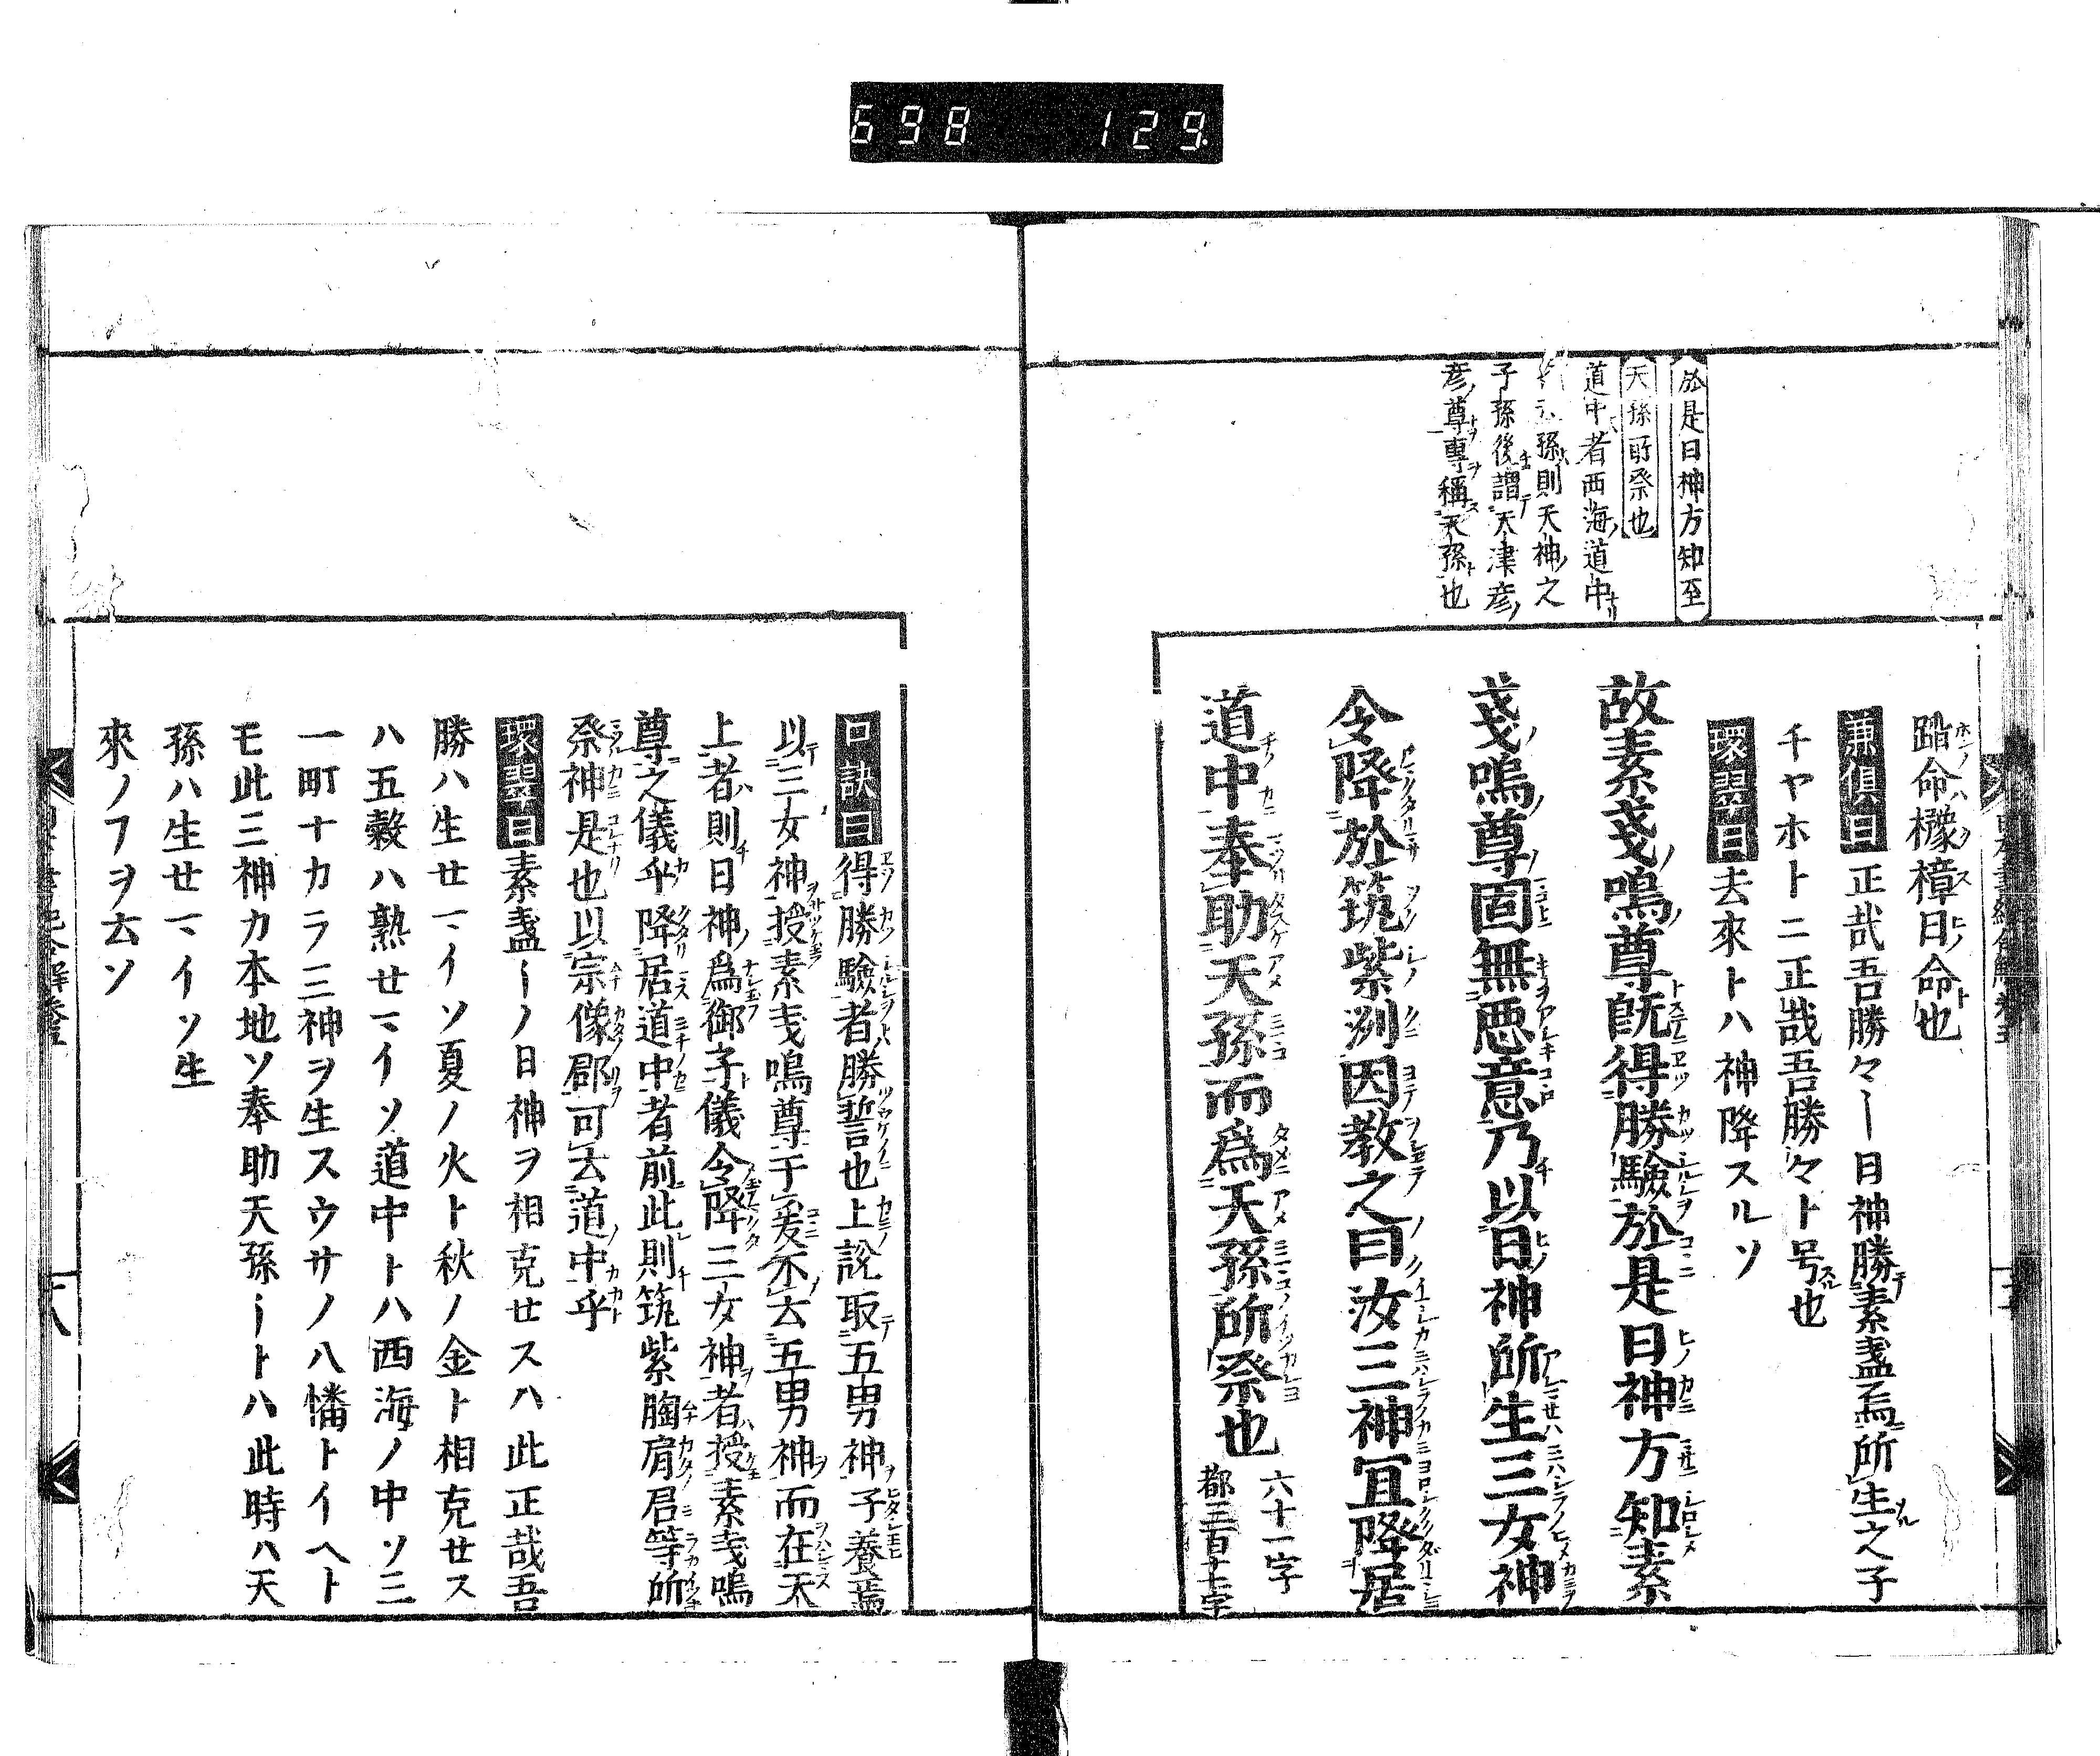 698 129
於是日神方知至
天孫所祭也
道中者西海道中
孫則天神之
子孫後謂天津彦
彦尊專稱天孫也
蹈命櫲樟日命也
兼倶曰正哉吾勝々ー日神勝素盞烏所生之子
チヤホトニ正哉吾勝々ト号也
環翠曰去來トハ神降スルソ
故素戔嗚尊既得勝驗於是日神方知素
戔嗚尊固無悪意乃以日神所生三女神
令降於筑紫洲因教之曰汝三神宜降居
道中奉助天孫而爲天孫所祭也
六十一字
都三百十七字
口訣曰得勝驗者勝誓也上說取五男神子養焉
以三女神授素戔嗚尊于爰不去五男神而在天
上者則日神爲御子儀令降三女神者授素戔嗚
尊之儀乎降居道中者前此則筑紫胸肩君等所
祭神是也以宗像郡可去道中乎
環翠曰素盞ーノ日神ヲ相克セスハ此正哉吾
勝ハ生せマイソ夏ノ火ト秋ノ金ト相克せス
ハ五穀ハ熟せマイソ道中トハ西海ノ中ソ三
一町十カラ三神ヲ生スウサノ八幡トイヘト
モ此三神カ本地ソ奉助天孫ートハ此時ハ天
孫ハ生せマイソ生
來ノフヲ去ソ